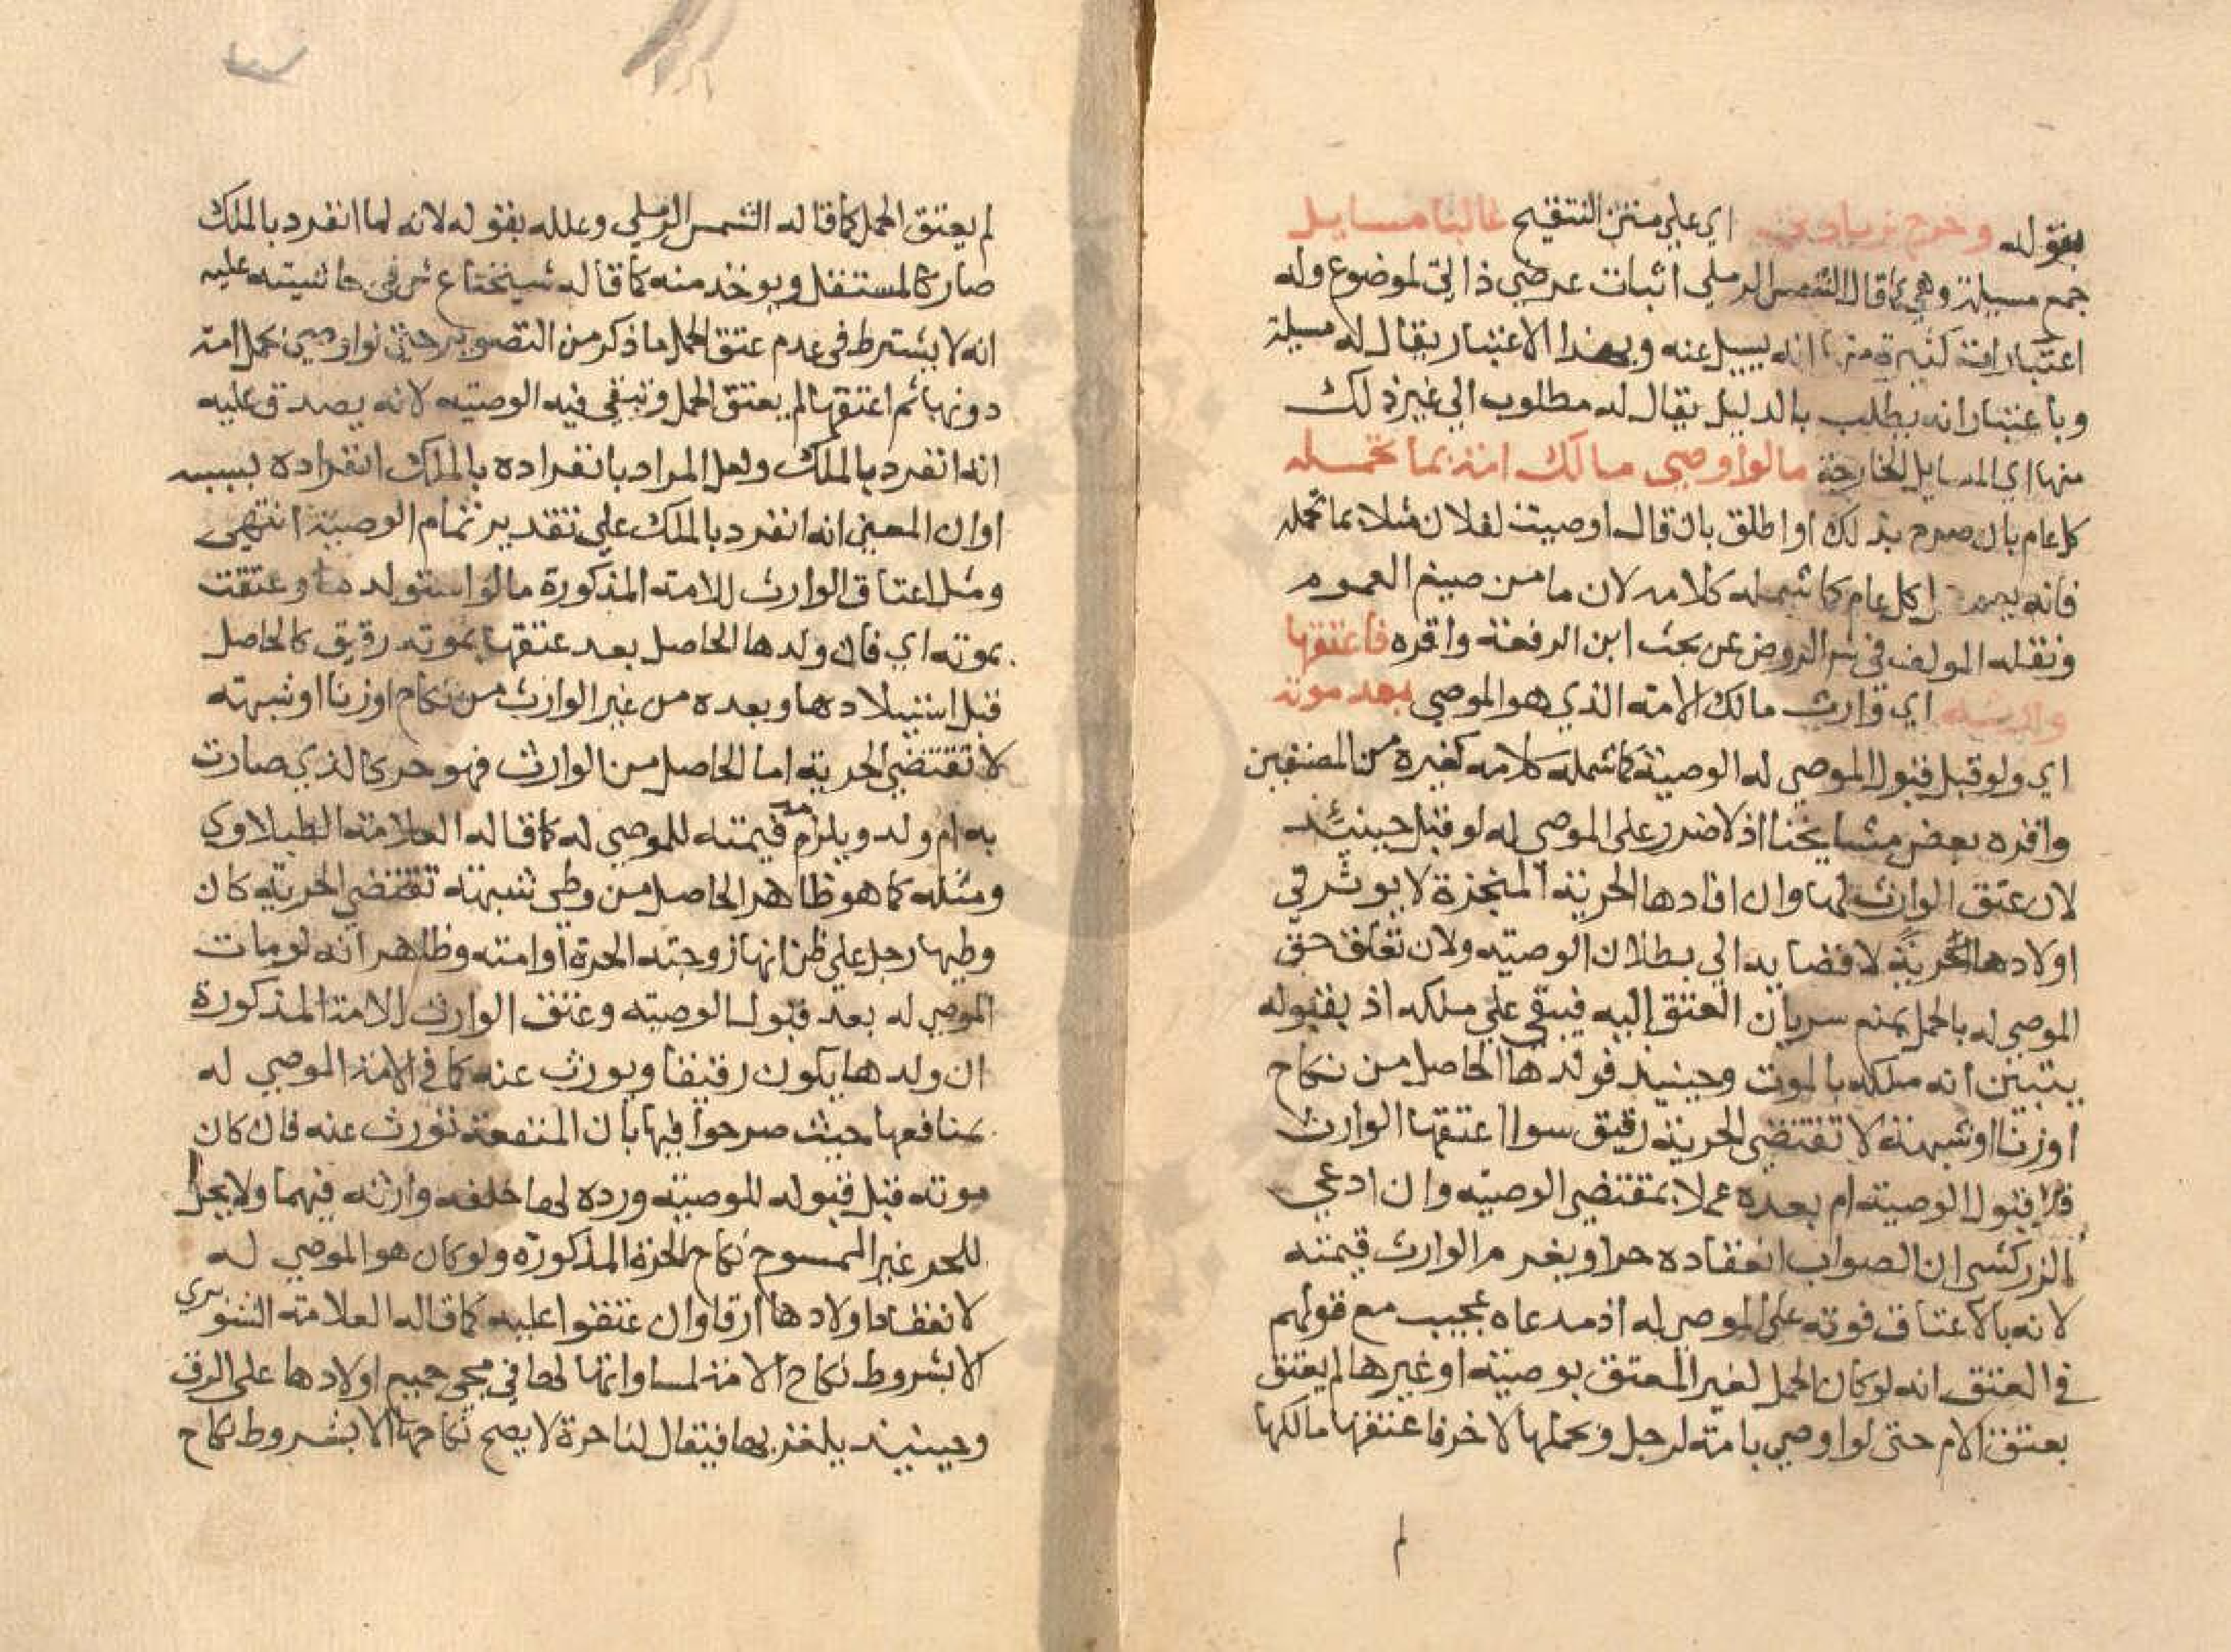 بقوله وخرج بزيادتي اي علي متن التنقيح غالبا مسايل
جمع مسيلة وهي كما قال الشمس الرملي اثبات عرضي ذاتي لموضوع وله
اعتبارات كثيرة منها انه يسيل عنه وبهذا الاعتبار يقال له مسيلة
وباعتبار انه يطلب بالدليل يقال له مطلوب الي غير ذلك
منها اي المسايل الخارجة ما لو اوصي مالك امة بما تحمله
كل عام بان صرح بذلك او اطلق بان قال اوصيت لفلان مثلا بما تحمله
فانه كل عام كما شمله كلامه لان ما من صيغ العموم
ونقله المولف في شرح الروض عن بحث ابن الرفعة واقره فاعتقها
وارثه اي وارث مالك الامة الذي هو الموصي بعد موته
اي ولو قبل قبول الموصي له الوصية كما شمله كلامه كغيره من المصنفين
واقره بعض مشايخنا اذ لا ضرر علي الموصي له لو قبل حينئذ
لان عتق الوارث لها وان افادها الحرية المنجزة لا يوثر في
اولادها الحرية لافضايه الي بطلان الوصية ولان تعلق حق
الموصي له بالحمل يمنع سريان العتق إليه فيبقي علي ملكه اذ بقبوله
يتبين انه ملكه بالموت وحينيذ فولدها الحاصل من نكاح
او زنا او شبهة لا تقتضي الحرية رقيق سوا اعتقها الوارث
قبل قبول الوصية ام بعده عملا بمقتضي الوصية وان ادعي
الزركشي ان الصواب انعقاده حرا ويغرم الوارث قيمته
لانه بالاعتاق فوته علي الموصي له اذ مدعاه عجيب مع قولهم
في العتق انه لو كان الحمل لغير المعتق بوصية او غيرها لم يعتق
بعتق الام حتي لو اوصي بامة لرجل وبحملها لاخر فاعتقها مالكها
لم
لم يعتق الحمل كما قاله الشمس الرملي وعلله بقوله لانه لما انفرد بالملك
صار كالمستقل ويوخذ منه كما قاله شيخنا ع ش في حاشيته عليه
انه لا يشترط في عدم عتق الحمل ما ذكر من التصوير حتي لو اوصي بحمل امة
دونها ثم اعتقها لم يعتق الحمل وتبقي فيه الوصية لانه يصدق عليه
انه انفرد بالملك ولعل المراد بانفراده بالملك انفراده بسببه
او ان المعني انه انفرد بالملك علي تقدير تمام الوصية انتهي
ومثل اعتاق الوارث للامة المذكورة ما لو استولدها وعتقت
بموته اي فان ولدها الحاصل بعد عتقها بموته رقيق كالحاصل
قبل استيلادها وبعده من غير الوارث من نكاح او زنا او شبهة
لا تقتضي الحرية اما الحاصل من الوارث فهو حر كالذي صارت
به ام ولد ويلزمه قيمته للموصي له كما قاله العلامة الطبلاوي
ومثله كما هو ظاهر الحاصل من وطي شبهة تقتضي الحرية كان
وطيها رجل علي ظن انها زوجته الحرة او امته وظاهر انه لو مات
الموصي له بعد قبول الوصية وعتق الوارث للامة المذكورة
ان ولدها يكون رقيقا ويورث عنه كما في الامة الموصي له
بمنافعها حيث صرحوا فيها بان المنفعة تورث عنه فان كان
موته قبل قبوله للوصية ورده لها خلفه وارثه فيهما ولا يحل
للحر غير الممسوح نكاح الحرة المذكورة ولو كان هو الموصي له
لانعقاد اولادها ارقا وان عتقوا عليه كما قاله العلامة الشوبري
الا بشروط نكاح الامة لمساواتها لها في مجي جميع اولادها علي الرق
وحينيذ يلغز بها فيقال لنا حرة لا يصح نكاحها الا بشروط نكاح